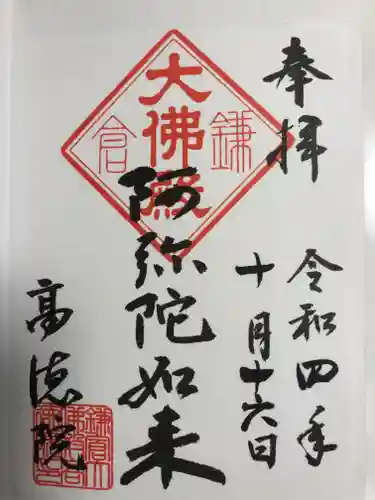 奉拝
令和四年
十月十六日
鎌倉
大佛殿
阿弥陀如来
高徳院